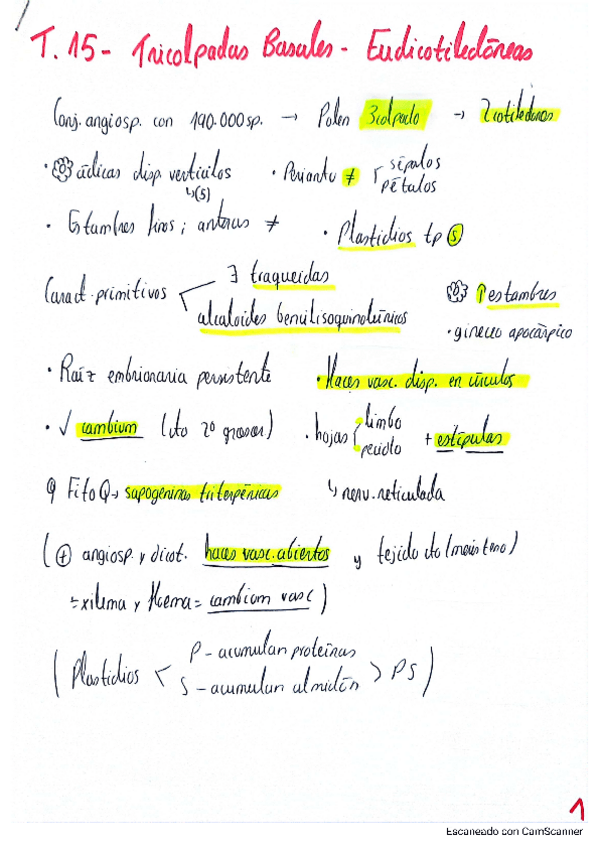 T. 15 - Tricolpadas Basales - Eudicotiledóneas
Conj. angiosp. con 190.000 sp. → Polen 3colpado → 2cotiledones
· cíclicas disp. verticilos · Perianto ≠ sépalos
(5) pétalos
· Estambres finos; anteras ≠ · Plastidios tp S
Caract. primitivos ∃ traqueidas ↑estambres
alcaloides bencilisoquinoleínicos · gineceo apocárpico
· Raíz embrionaria persistente · Haces vasc. disp. en círculos
· √ cambium (cto 2º grosor) · hojas limbo + estípulas
peciolo
FitoQ → sapogeninas triterpénicas ↳ nerv. reticulada
(⊕ angiosp. y dicot. haces vasc. abiertos y tejido cto (meristemo)
= xilema y floema = cambium vasc)
(Plastidios < P - acumulan proteínas > PS)
S - acumulan almidón
1
Escaneado con CamScanner